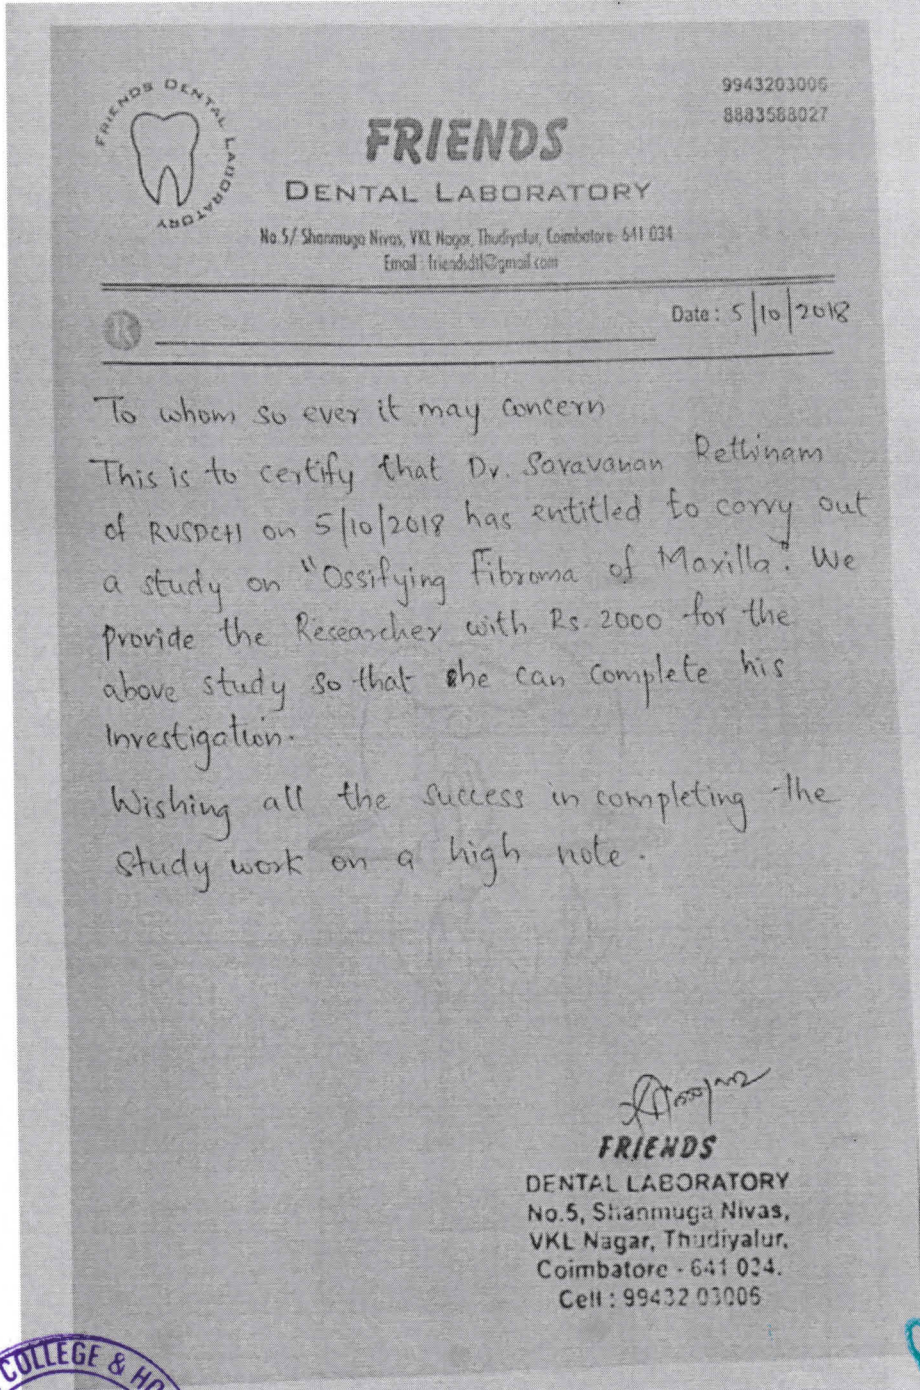 FRIENDS DENTAL LABORATORY
9943203006
8883588027
FRIENDS
DENTAL LABORATORY
No.5/ Shanmuga Nivas, VKL Nagar, Thudiyalur, Coimbatore- 641 034
Email : friendsdtl@gmail.com
Date : 5/10/2018
To whom so ever it may concern
This is to certify that Dr. Saravanan Rethinam
of RVSDCH on 5/10/2018 has entitled to carry out
a study on "Ossifying Fibroma of Maxilla". We
provide the Researcher with Rs. 2000 for the
above study so that he can complete his
Investigation.
Wishing all the success in completing the
study work on a high note.
FRIENDS
DENTAL LABORATORY
No.5, Shanmuga Nivas,
VKL Nagar, Thudiyalur,
Coimbatore - 641 034.
Cell : 99432 03006
COLLEGE & HO